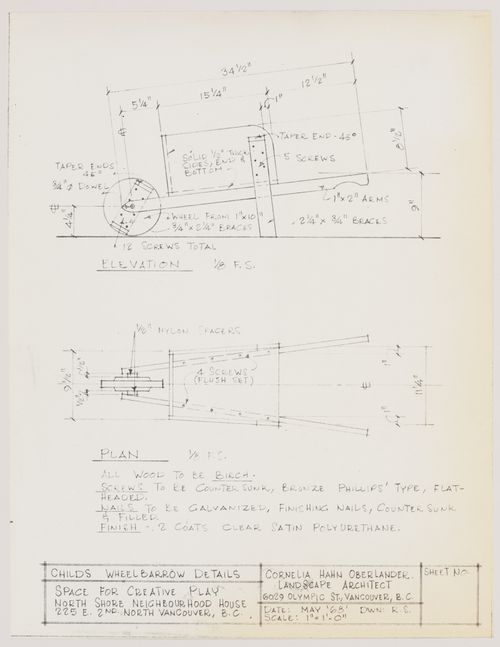 34 1/2"
15 1/4"
12 1/2"
5 1/4"
1"
8 1/2"
TAPER END - 45°
5 SCREWS
SOLID 1/2" THICK
SIDES, END &
BOTTOM -
TAPER ENDS
45°
3/4" ø DOWEL
1"x2" ARMS
9"
4 1/4"
WHEEL FROM 1"x10"
3/4"x2 1/4" BRACES
2 1/4"x 3/4" BRACES
12 SCREWS TOTAL
ELEVATION 1/8 F.S.
1/8" NYLON SPACERS
4 SCREWS
(FLUSH SET)
9 1/2"
1/2"
1/2"
1"
1"
11 1/4"
PLAN 1/8 F.S.
ALL WOOD TO BE BIRCH.
SCREWS TO BE COUNTER SUNK, BRONZE PHILLIPS' TYPE, FLAT-
HEADED.
NAILS TO BE GALVANIZED, FINISHING NAILS, COUNTER SUNK
& FILLED
FINISH -. 2 COATS CLEAR SATIN POLYURETHANE.
CHILDS WHEELBARROW DETAILS
SPACE FOR CREATIVE PLAY
NORTH SHORE NEIGHBOURHOOD HOUSE
225 E. 2ND. NORTH VANCOUVER, B.C.
CORNELIA HAHN OBERLANDER.
LANDSCAPE ARCHITECT
6029 OLYMPIC ST., VANCOUVER, B.C.
DATE: MAY '68 DWN: R.S.
SCALE: 1"=1'-0"
SHEET NO.